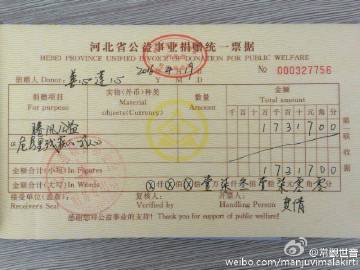 河北省公益事业捐赠统一票据
HEBEI PROVINCE UNIFIED INVOICE OF DONATION FOR PUBLIC WELFARE
捐赠人Donor: 善心莲心 2015年 月19日 No 000327756
Y M D
捐赠项目 For purpose 实物(外币)种类 Material objects(Currency) 数量 Amount 金额 Total amount
千百十万千百十元角分
腾讯公益 1731700
金额合计(小写)In Figures 1731700
金额合计(大写)In Words 仟 佰 拾壹万柒仟叁佰壹拾柒元零角零分
接受单位(盖章): Receiver's Seal 复核人: Verified by 开票人: Handling Person
感谢您对公益事业的支持! Thank you for support of public welfare!
@常观世音
weibo.com/manjuvimalakirti